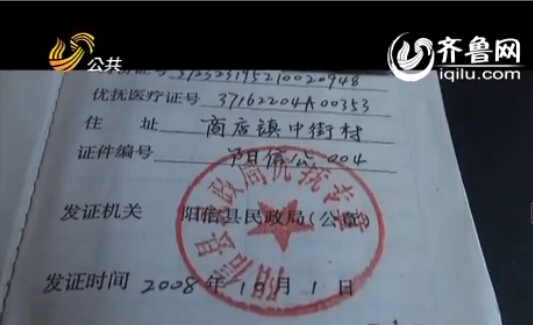 公共
齐鲁网
iqilu.com
证号
优抚医疗证号 37162204A00353
住 址 商店镇中街村
证件编号 阳信 004
发证机关 阳信县民政局(公章)
发证时间 2008 年 10 月 1 日